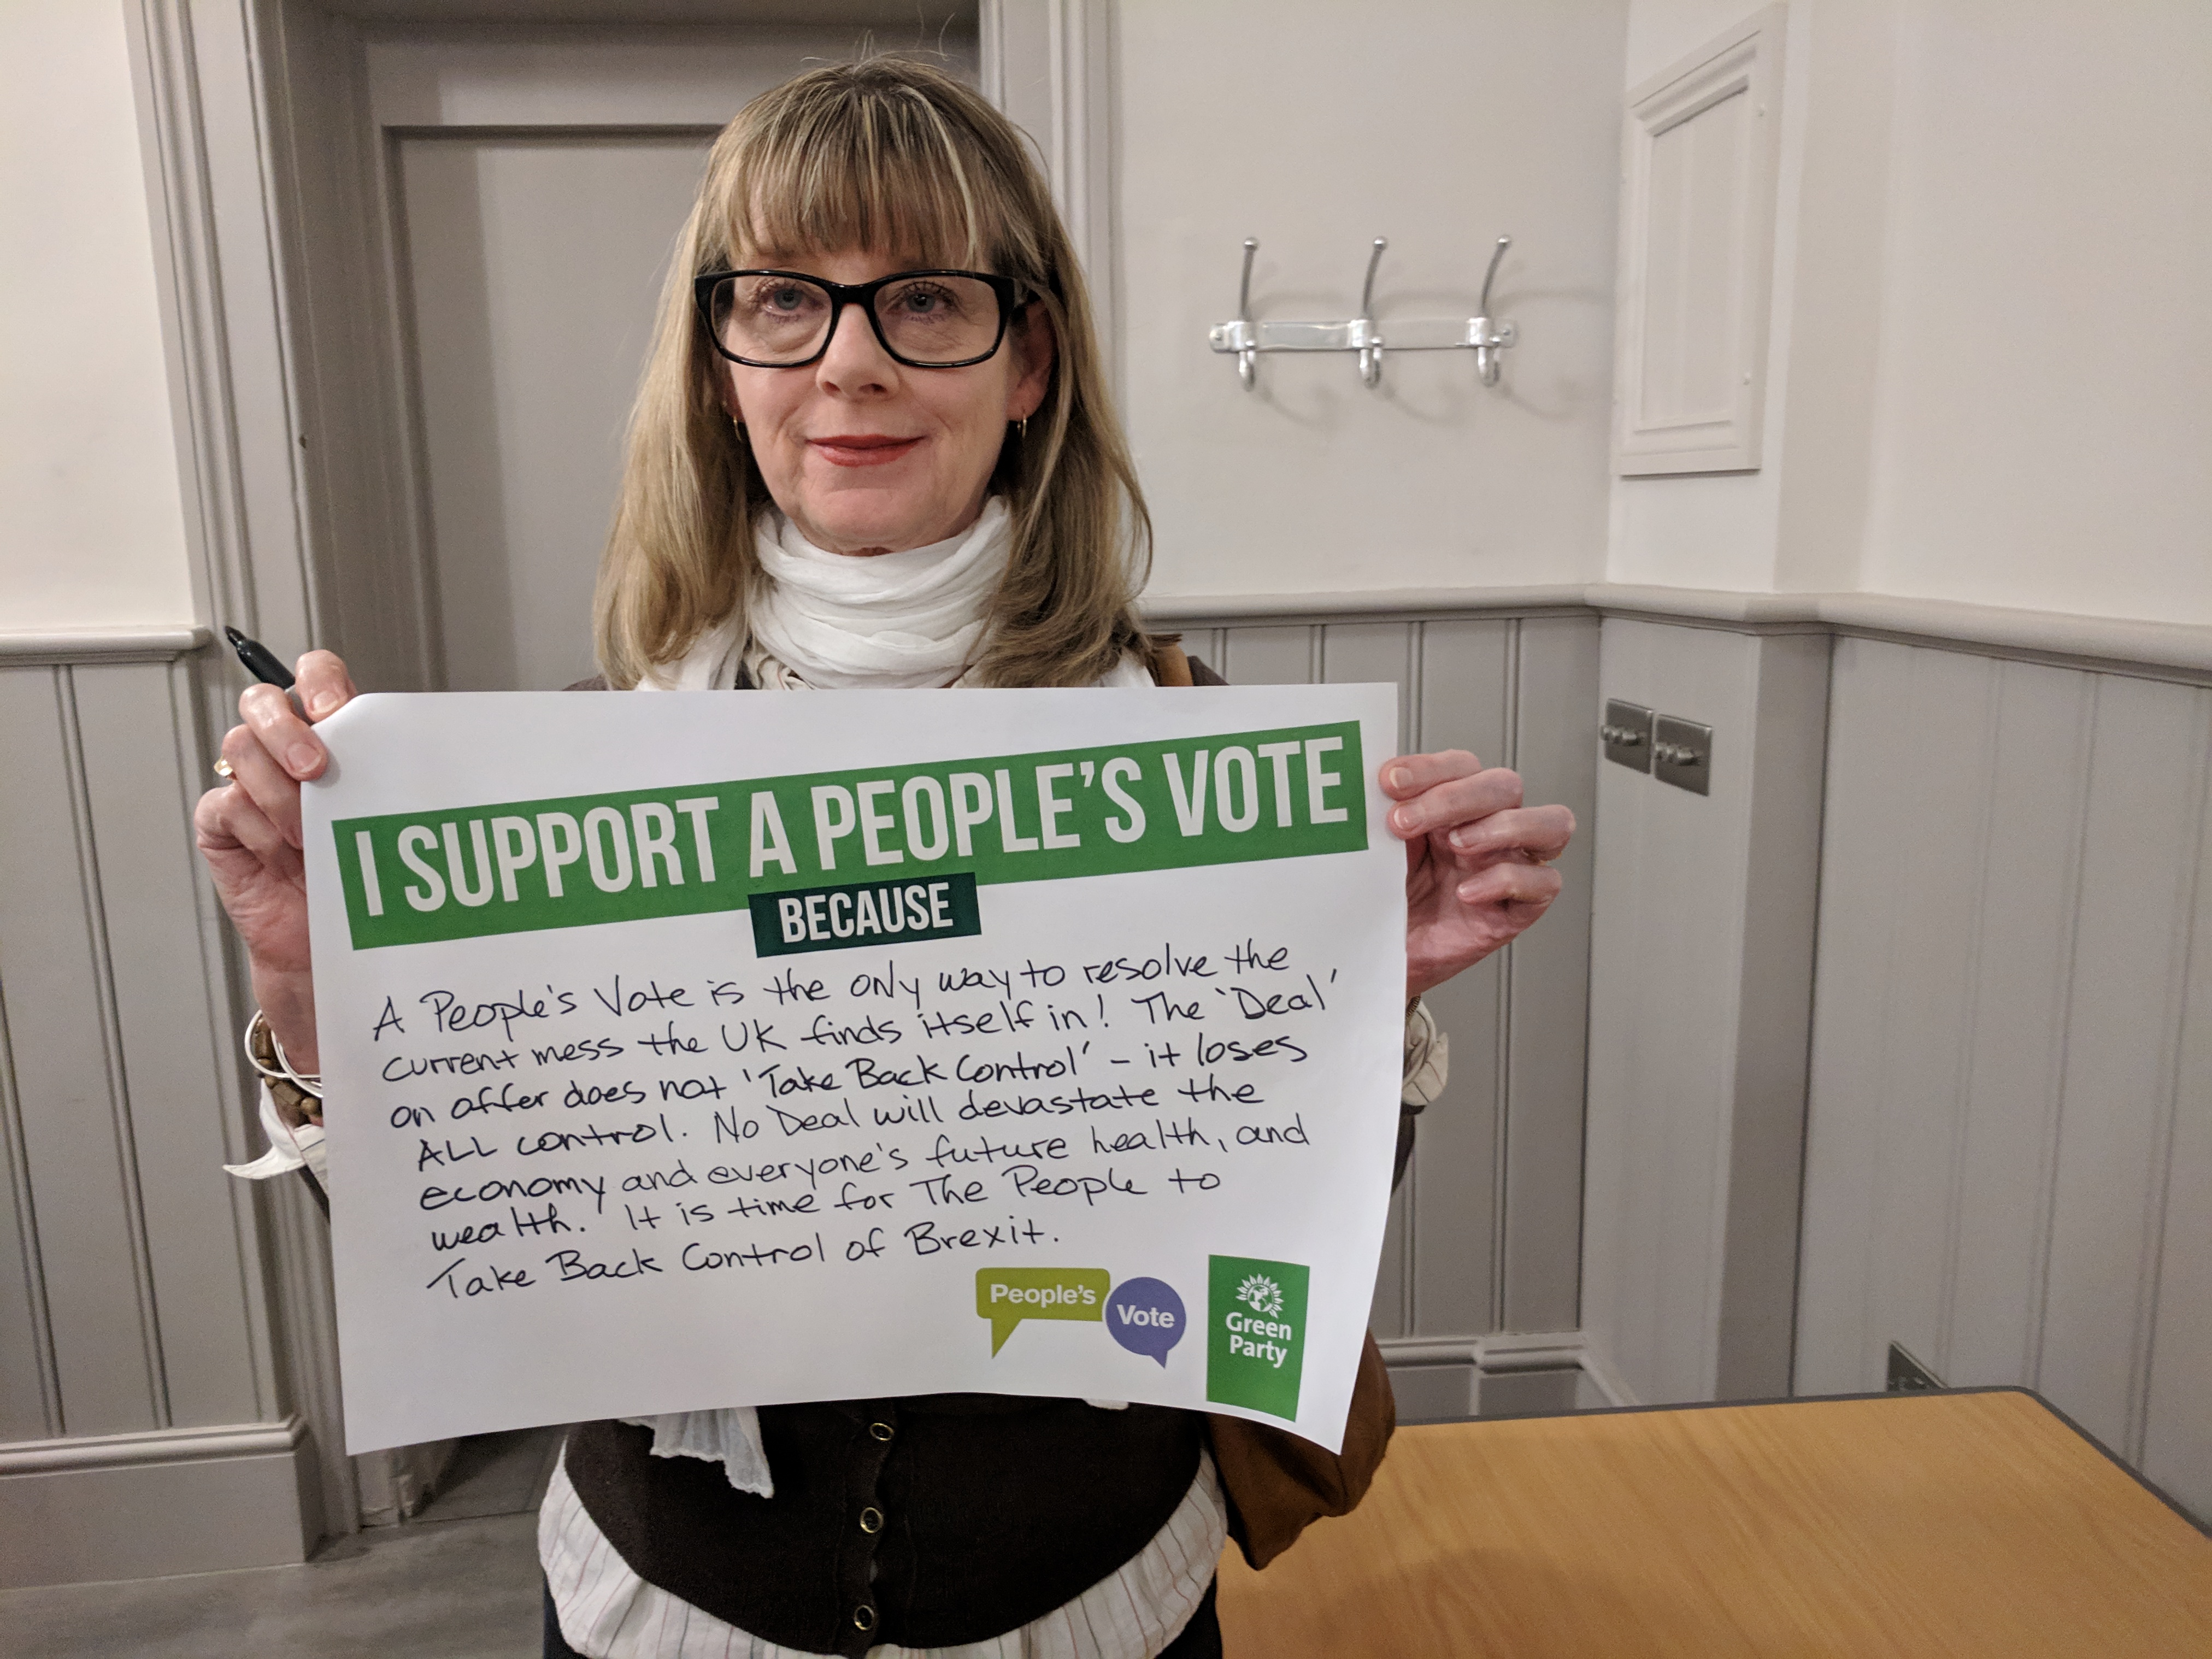 I SUPPORT A PEOPLE'S VOTE
BECAUSE
A People's Vote is the only way to resolve the
current mess the UK finds itself in! The 'Deal'
on offer does not 'Take Back Control' - it loses
ALL control. No Deal will devastate the
economy and everyone's future health, and
wealth. It is time for The People to
Take Back Control of Brexit.
People's
Vote
Green
Party